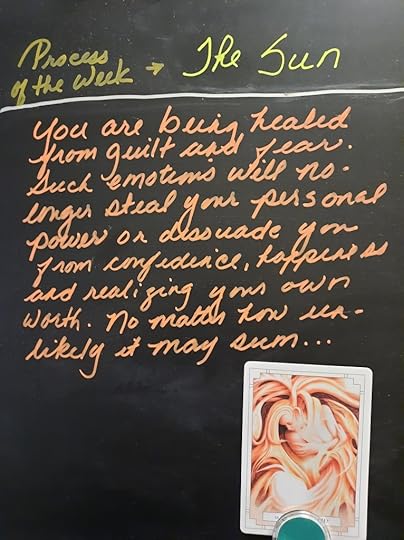 Process
of the Week → The Sun
You are being healed
from guilt and fear.
Such emotions will no-
longer steal your personal
power or dissuade you
from confidence, happiness
and realizing your own
worth. No matter how un-
likely it may seem...